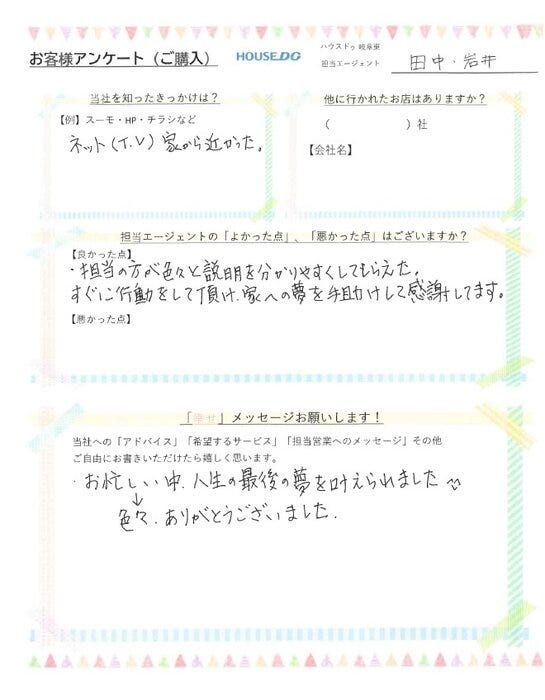 お客様アンケート（ご購入）
HOUSEDO
ハウスドゥ 岐阜東
担当エージェント 田中・岩井
当社を知ったきっかけは？
【例】スーモ・HP・チラシなど
ネット（T.V）家から近かった。
他に行かれたお店はありますか？
（　　　　）社
【会社名】
担当エージェントの「よかった点」、「悪かった点」はございますか？
【良かった点】
・担当の方が色々と説明を分かりやすくしてもらえた。
すぐに行動をして頂け、家への夢を手助けして感謝してます。
【悪かった点】
「幸せ」メッセージお願いします！
当社への「アドバイス」「希望するサービス」「担当営業へのメッセージ」その他
ご自由にお書きいただけたら嬉しく思います。
・お忙しい中、人生の最後の夢を叶えられました
↓
色々、ありがとうございました.